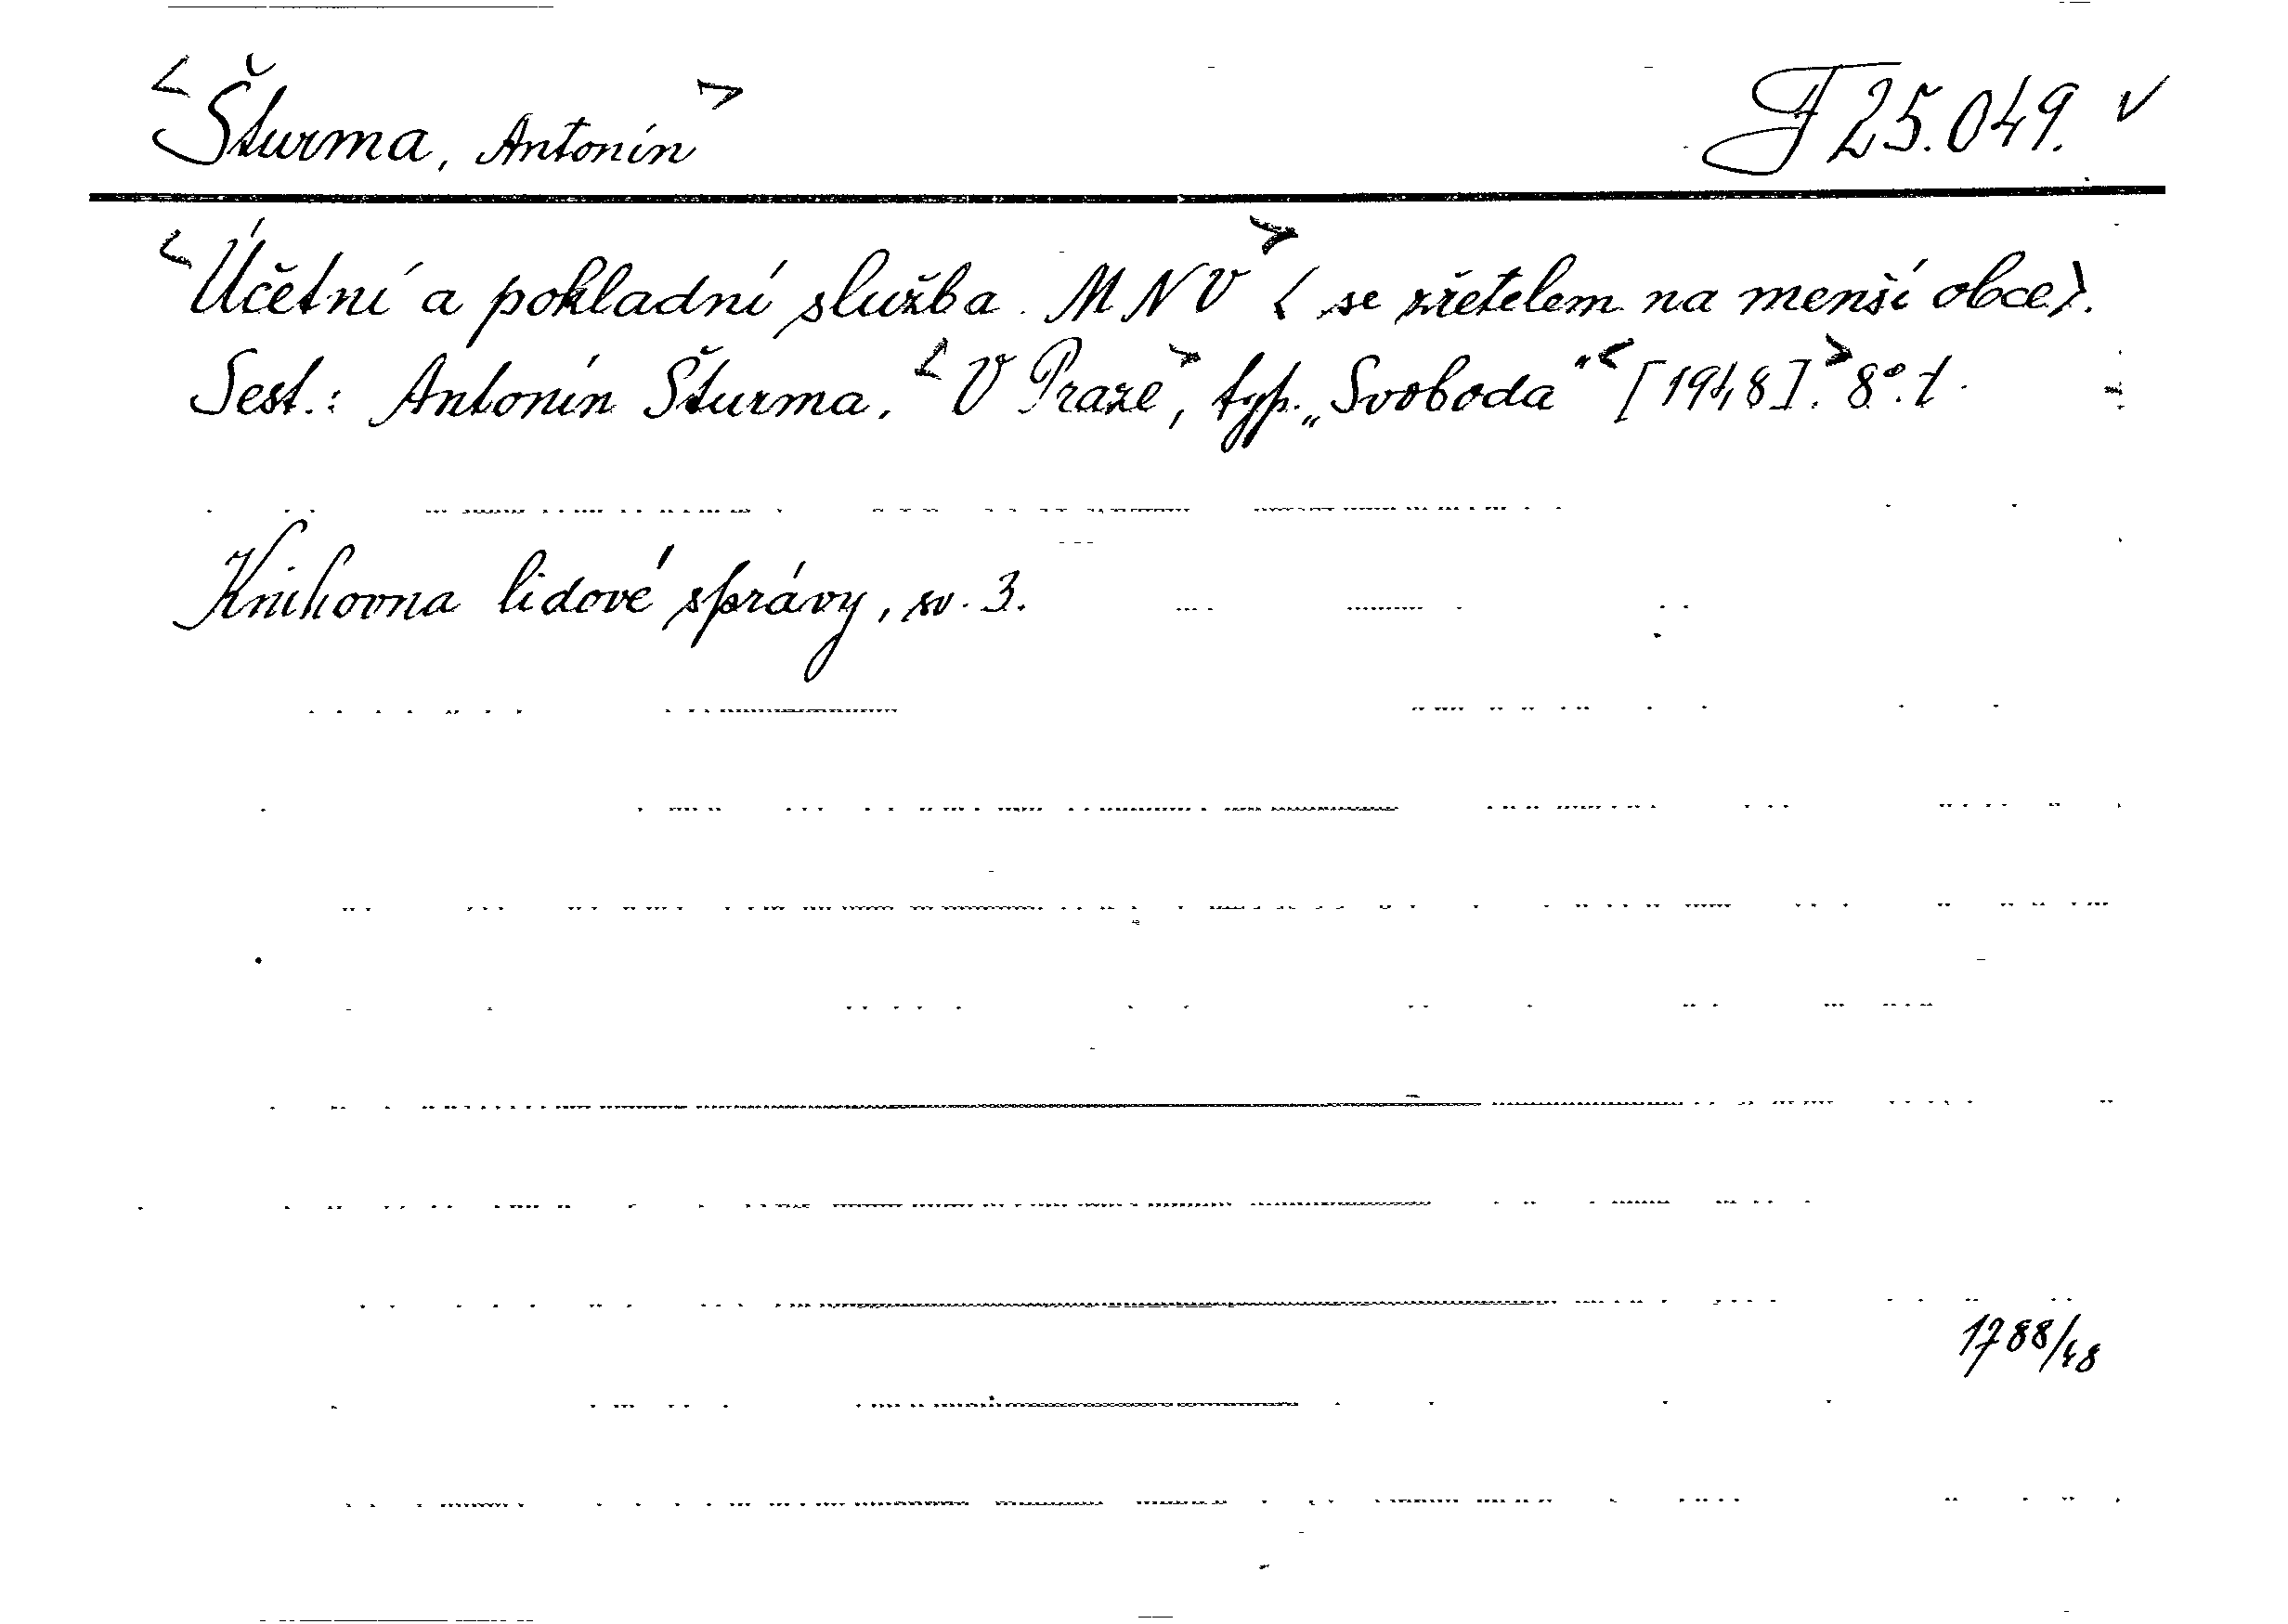 <Šturma, Antonín> F 25.049. v
<Účetní a pokladní služba MNV> (se zřetelem na menší obce).
Sest.: Antonín Šturma. <V Praze>, typ. „Svoboda“ <[1948].> 8°. t.
Knihovna lidové správy, sv. 3.
1788/48